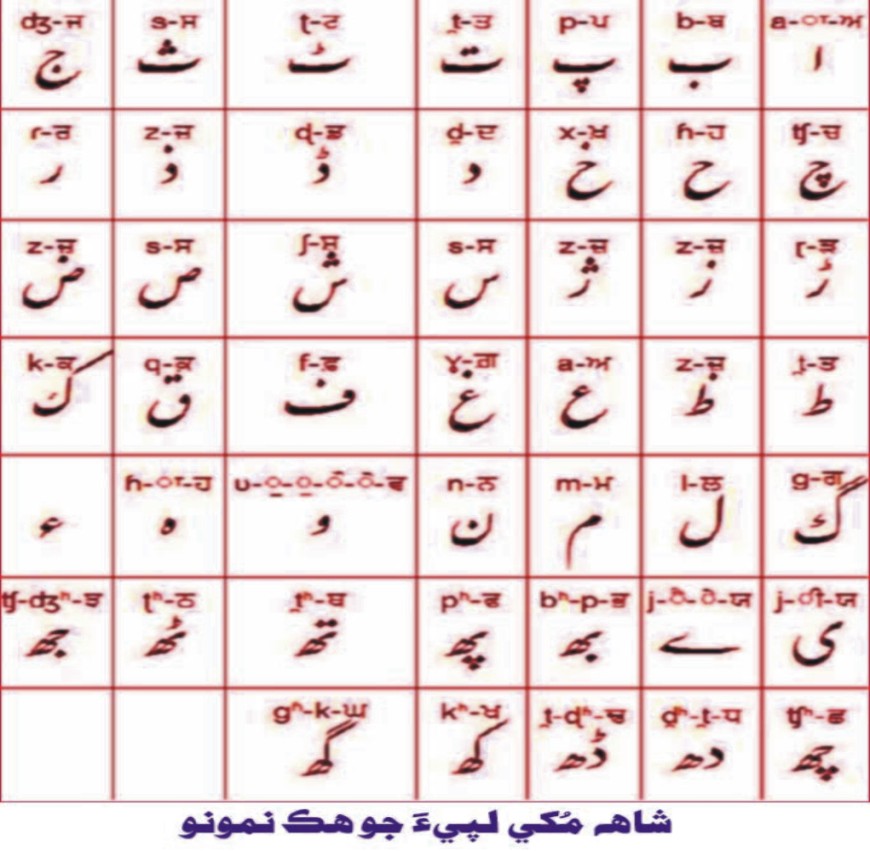 a-ਾ-ਅ b-ਬ p-ਪ t̪-ਤ ʈ-ਟ s-ਸ dʒ-ਜ
ا ب پ ت ٹ ث ج
ʧ-ਚ ɦ-ਹ x-ਖ਼ d̪-ਦ ɖ-ਡ z-ਜ਼ ɾ-ਰ
چ ح خ د ڈ ذ ر
ɽ-ੜ z-ਜ਼ z-ਜ਼ s-ਸ ʃ-ਸ਼ s-ਸ z-ਜ਼
ڑ ز ژ س ش ص ض
t̪-ਤ z-ਜ਼ a-ਅ ɣ-ਗ਼ f-ਫ਼ q-ਕ਼ k-ਕ
ط ظ ع غ ف ق ک
g-ਗ l-ਲ m-ਮ n-ਨ ʋ-ੁ-ੂ-ੋ-ੌ-ਵ ɦ-ਾ-ਹ
گ ل م ن و ہ ء
j-ੀ-ਯ j-ੈ-ੇ-ਯ bʰ-p-ਭ pʰ-ਫ t̪ʰ-ਥ ʈʰ-ਠ ʧ-dʒʰ-ਝ
ی ے بھ پھ تھ ٹھ جھ
ʧʰ-ਛ d̪ʰ-t̪-ਧ ʈ-ɖʰ-ਢ kʰ-ਖ gʰ-k-ਘ
چھ دھ ڈھ کھ گھ
شاهہ مُکي لپيءَ جو هڪ نمونو